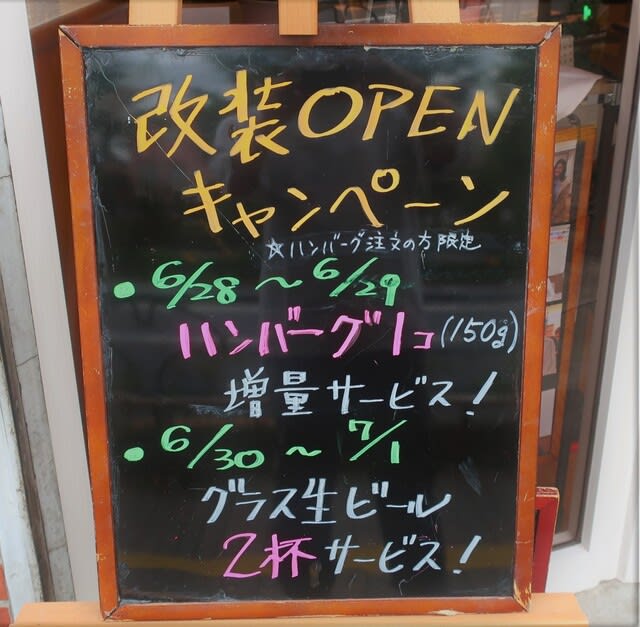 改装OPEN
キャンペーン
☆ハンバーグ注文の方限定
●6/28～6/29
ハンバーグ1コ(150g)
増量サービス！
●6/30～7/1
グラス生ビール
2杯サービス！